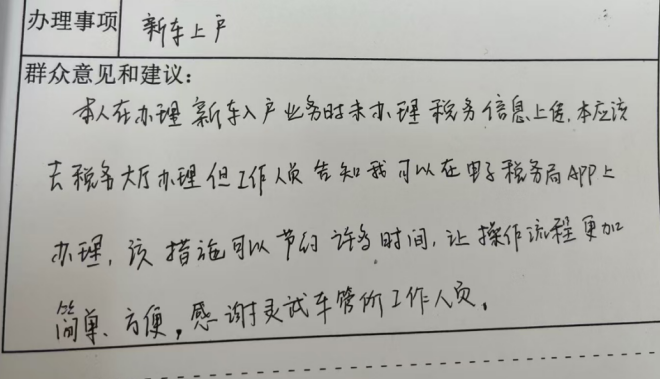 办理事项 新车上户
群众意见和建议：
本人在办理新车入户业务时未办理税务信息上传，本应该
去税务大厅办理但工作人员告知我可以在电子税务局APP上
办理，该措施可以节约许多时间，让操作流程更加
简单、方便，感谢灵武车管所工作人员。